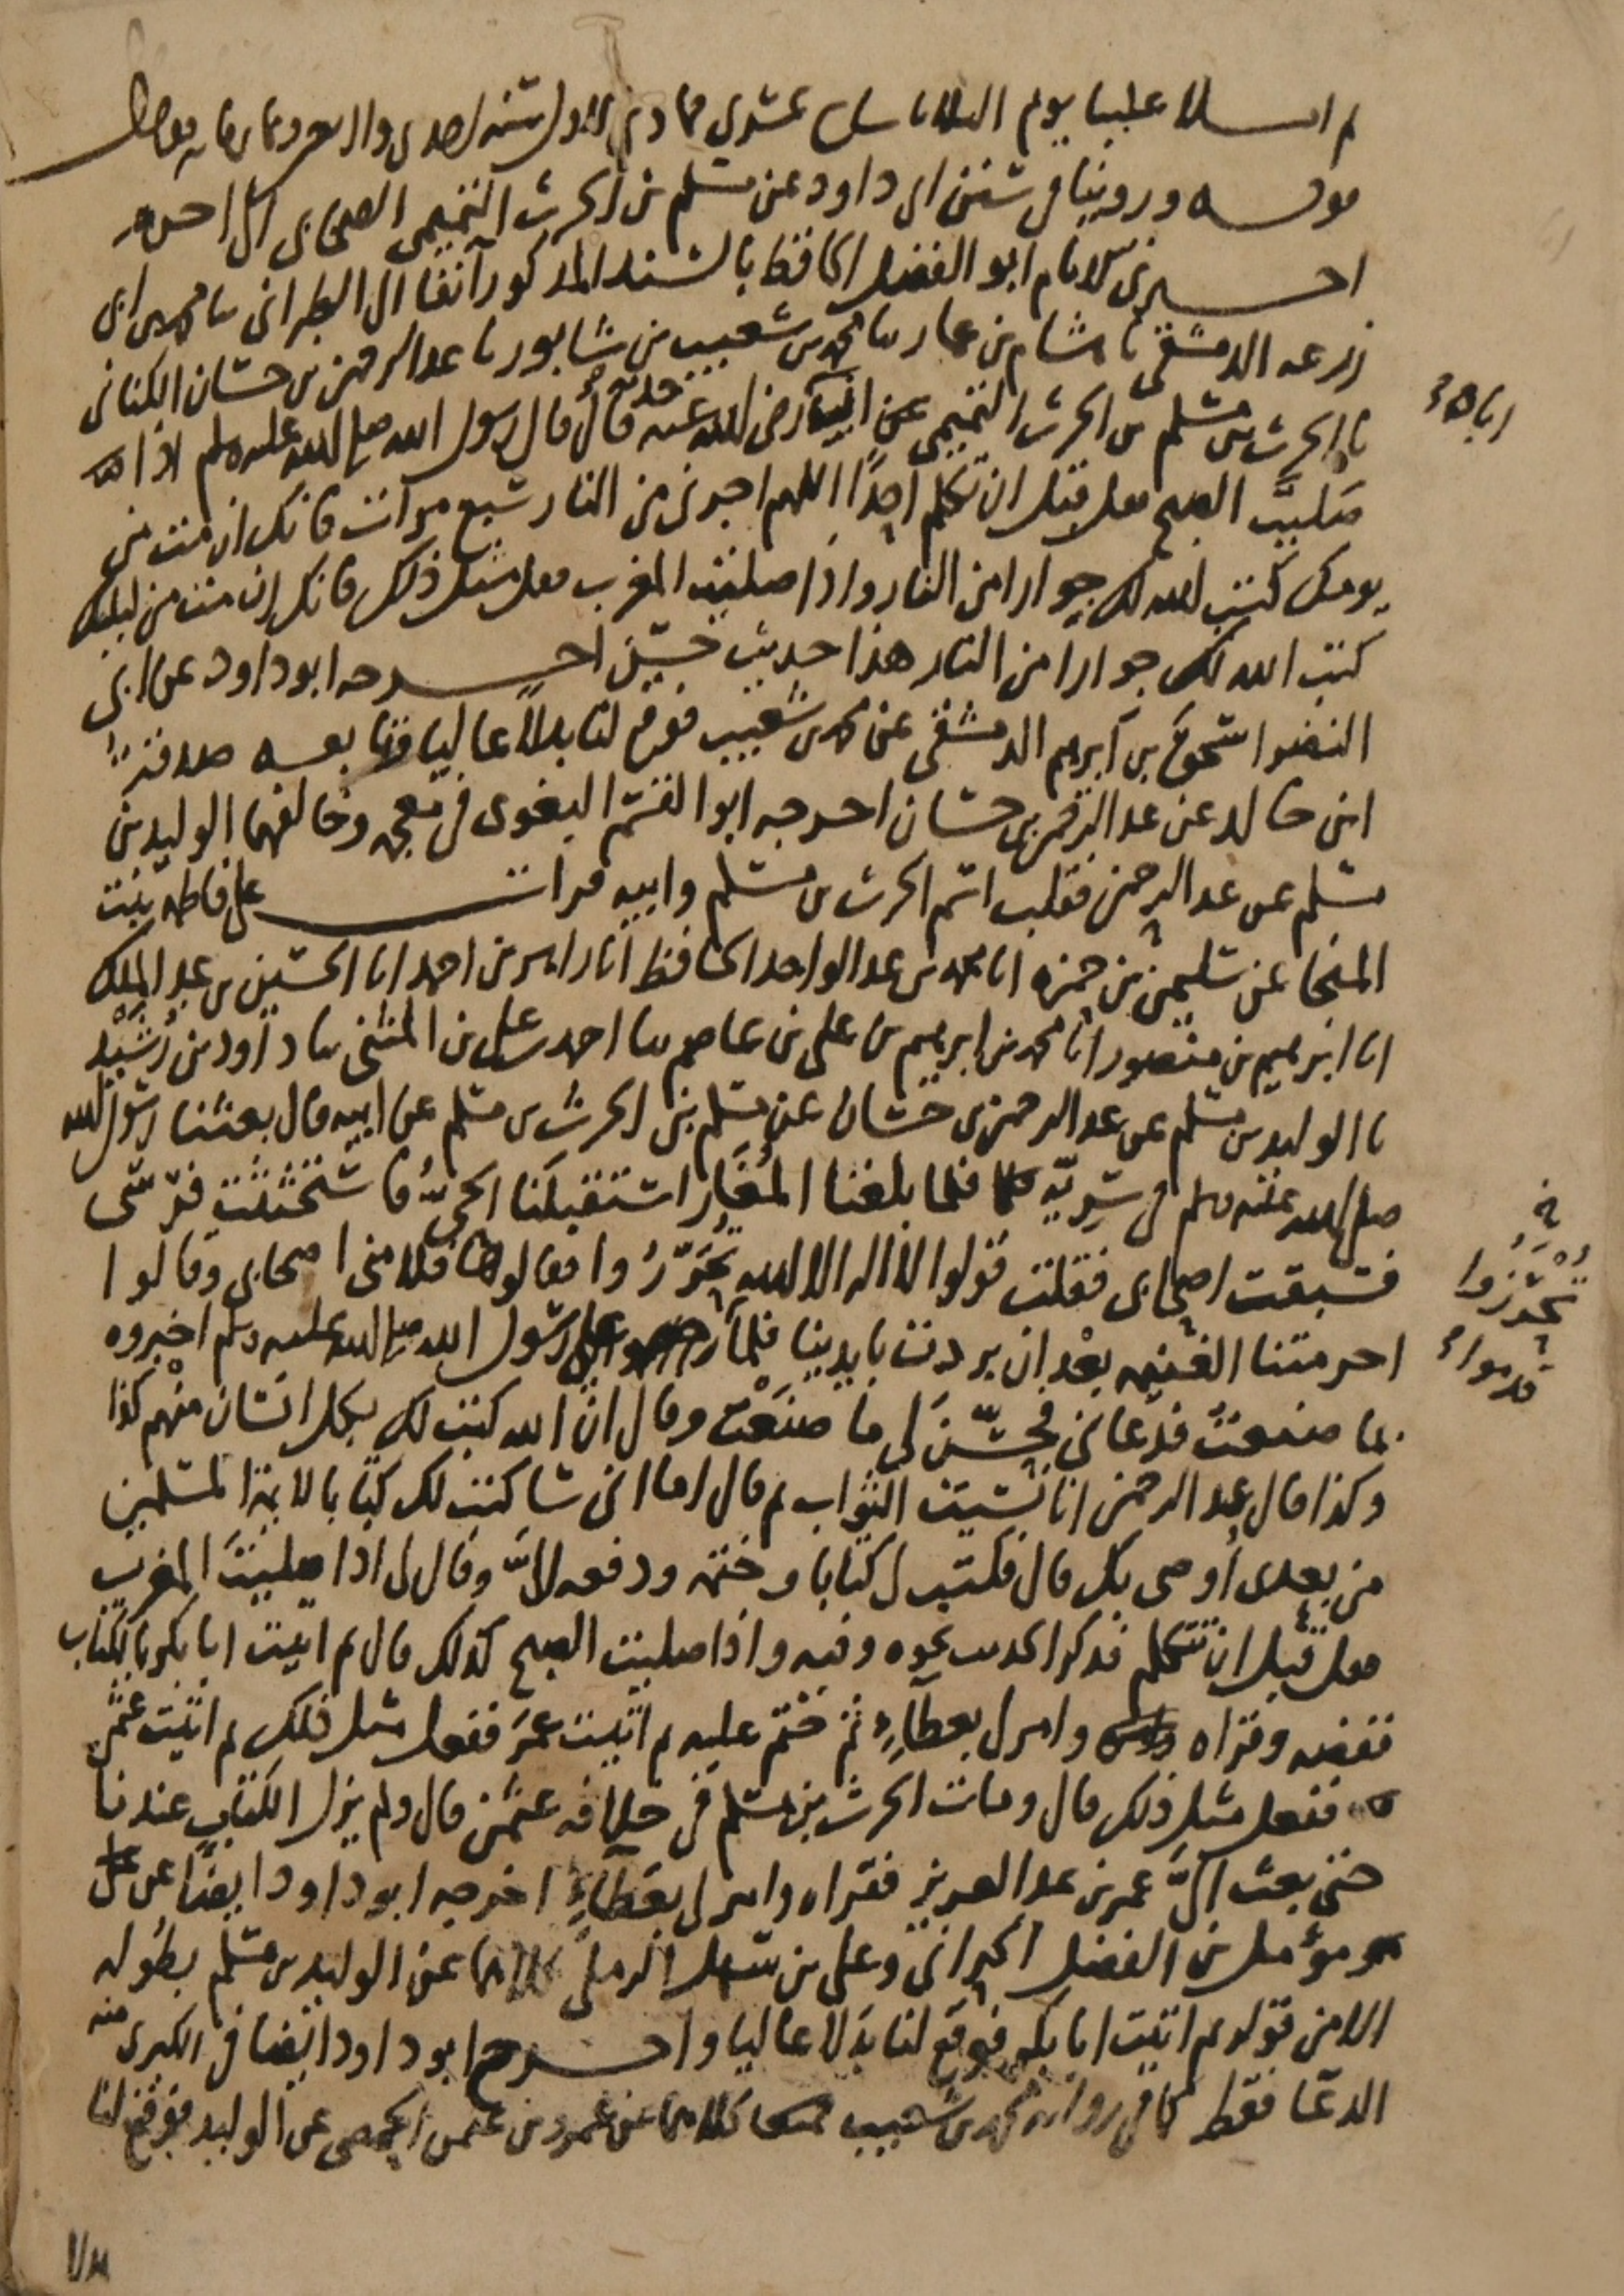 ثم املا علينا يوم الثلاثا سادس عشري جمادى الاول سنه احدى واربعين وثمان مايه
قوله ورويناه في سنن ابي داود عن مسلم بن الحرث التميمي الصحابي الى اخره
اخبرني الامام ابو الفضل الحافظ بالسند المذكور آنفا الى الطبراني ثنا محمد بن ابي
زرعه الدمشقي ثنا هشام بن عمار ثنا محمد بن شعيب بن شابور ثنا عبد الرحمن بن حسان الكناني
ثنا الحرث بن مسلم بن الحرث التميمي عن ابيه رضي الله عنه قال قال رسول الله صلى الله عليه وسلم اذا
صليت الصبح فقل قبل ان تكلم احدًا اللهم اجرني من النار سبع مرات فانك ان مت من
يومك كتب الله لك جوارا من النار واذا صليت المغرب فقل مثل ذلك فانك ان مت من ليلتك
كتب الله لك جوارا من النار هذا حديث حسن اخرجه ابو داود عن ابي
النضر اسحق بن ابرهيم الدمشقي عن محمد بن شعيب فوقع لنا بدلًا عاليا وتابعه صدقة
ابن خالد عن عبد الرحمن بن حسان اخرجه ابو القسم البغوي في معجمه وخالفهما الوليد بن
مسلم عن عبد الرحمن فقلب اسم الحرث بن مسلم وابيه قرات على فاطمه بنت
المنجا عن سليمن بن حمزه انا محمد بن عبد الواحد الحافظ انا زاهر بن احمد انا الحسين بن عبد الملك
انا ابرهيم بن منصور انا محمد بن ابرهيم بن علي بن عاصم ثنا احمد بن علي بن المثنى ثنا داود بن رُشَيْد
ثنا الوليد بن مسلم عن عبد الرحمن بن حسان عن مسلم بن الحرث بن مسلم عن ابيه قال بعثنا رسول الله
صلى الله عليه وسلم في سريّه فلما بلغنا المُغَار استقبلَنا الحيُّ فاستحثثت فرسي
فسبقت اصحابي فقلت قولوا لا اله الا الله تُحَرّزُوا فقالوها فلامني اصحابي وقالوا
احرمتنا الغنيمه بعْد ان بردت بايدينا فلما على رسول الله صلى الله عليه وسلم اخبروه
بما صنعتُ فدعاني فحسّنَ لي ما صنعْت وقال ان الله كتب لك بكل انسان منهم كذا
وكذا قال عبد الرحمن انا نسيت الثواب ثم قال اما اني ساكتب لك كتابا لايمة المسلمين
من بعدي اُوصي بك قال فكتب لي كتابا وختمه ودفعه لاليَّ وقال لي اذا صليتَ المغرب
فقل قبل ان تتكلم فذكر الحديث نحوه وفيه واذا صليت الصبح كذلك قال ثم اتيت ابا بكر بالكتاب
ففضه وقراه وامر لي بعطآءٍ ثم ختم عليه ثم اتيت عمرَ ففعل مثل ذلك ثم اتيت عثمن
ففعل مثل ذلك قال ومات الحرث بن مسلم في خلافه عثمن قال ولم يزل الكتاب عندنا
حتى بعث اليَّ عمر بن عبد العزيز فقراه وامر لي بعَطآءٍ اخرجه ابو داود ايضًا عن
مؤمل بن الفضل الحراني وعلي بن سهل الرملي كلاهما عن الوليد بن مسلم بطُوله
الا من قوله ثم اتيت ابا بكر فوقع لنا بدَلًا عاليا واخرجه ابو داود ايضا في الكبرى منه
الدعا فقط كما في روايه محمد بن شعيب كلاهما عن عمرو بن عثمن الحمصي عن الوليد فوقع لنا
حدثه
اباه
تُحْرَزُوا
قدموا